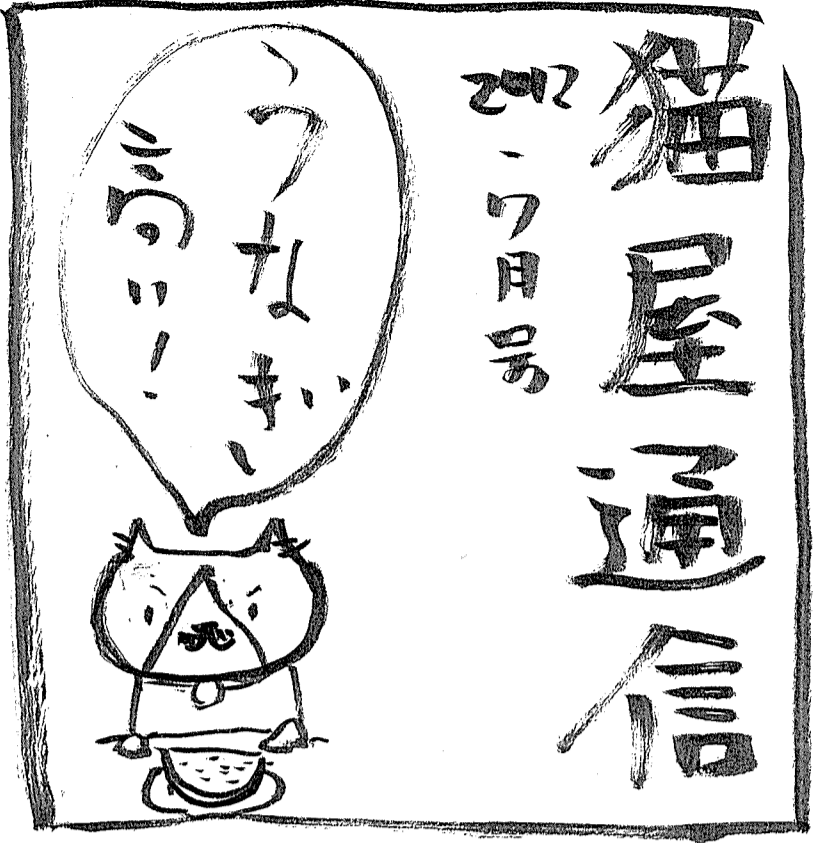 猫屋通信
2012・7月号
うなぎ、
高い!